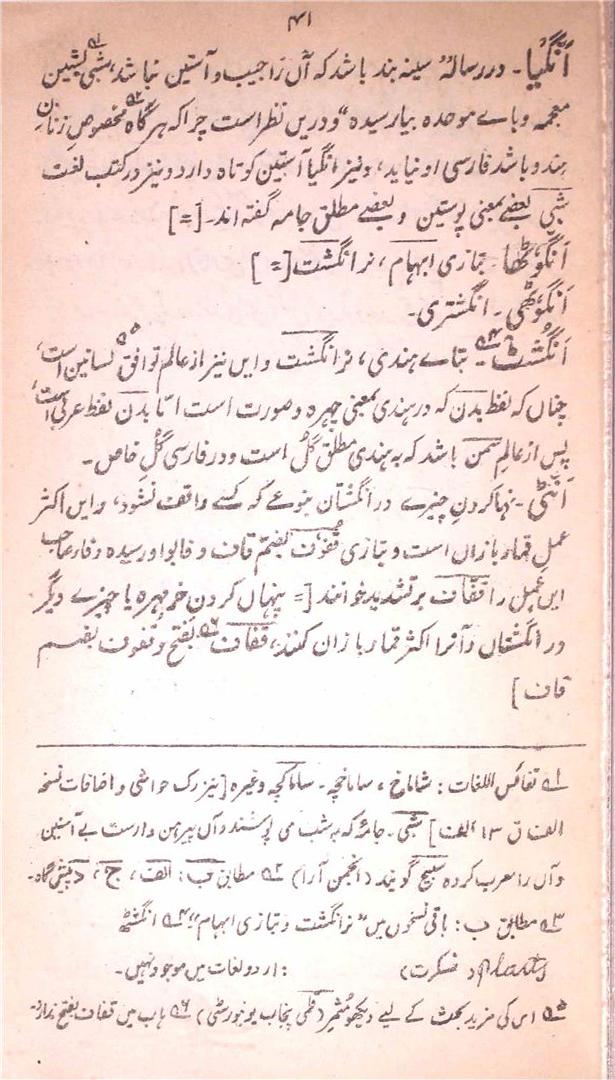 ۴۱
اَنْگِیا۔ در رسالہ سینہ بند باشد کہ آں را جیب و آستین نباشد، شبی بشین
معجمہ و باے موحدہ بیا رسیدہ" و دریں نظر است چرا کہ ہر گاہ مخصوص زنان
ہند و باشد فارسی او نیاید، و نیز انگیا آستین کوتاہ دارد و نیز در کتب لغت
شبی بعضے بمعنی پوستین و بعضے مطلق جامہ گفتہ اند۔ [=]
اَنگُوٹھا۔ بتازی ابہام، نر انگشت [=]
اَنگُوٹھی۔ انگشتری۔
اَنگُشٹ۵۴۔ بتاے ہندی، نر انگشت و ایں نیز از عالم توافق۵۵ لسانین است،
چناں کہ لفظ بدن کہ در ہندی بمعنی چہرہ و صورت است امّا بدن لفظ عربی است
پس از عالم سمن باشد کہ بہ ہندی مطلق گل است و در فارسی گل خاص۔
اَنٹی۔ نہا کردن چیزے در انگشتان بنوعے کہ کسے واقف نشود، و ایں اکثر
عمل قمار بازاں است و بتازی قفوف بضم قاف و فا بواو رسیدہ و فا و صاحب
ایں عمل را قفّاف بر تشدید خوانند [= پنہاں کردن خر مہرہ یا چیزے دیگر
در انگشتاں و آنرا اکثر قمار بازان کنند، قفاف۵۶ بفتح و قفوف بضم
قاف]
۵۱ نفائس اللغات: شاماخ، ساماخچہ۔ ساماکچہ وغیرہ [نیز رک حواشی و اضافات نسخہ
الف ق ۱۳ الف] شبی۔ جامہ کہ بہ شب می پوشند و آں پیرہن وارست بے آستین
و آں را معرب کردہ سبیج گویند (انجمن آرا) ۵۲ مطابق ب: الف، ج، د کہ بیش گاہ۔
۵۳ مطابق ب: باقی نسخوں میں "نر انگشت و بتازی ابہام" ۵۴ انگشٹھ
(سنسکرت) Platts: اردو لغات میں موجود نہیں۔
۵۵ اس کی مزید بحث کے لیے دیکھو مثمر (قلمی پنجاب یونیورسٹی) ۵۶ باب میں قفاف بفتح ندارد۔